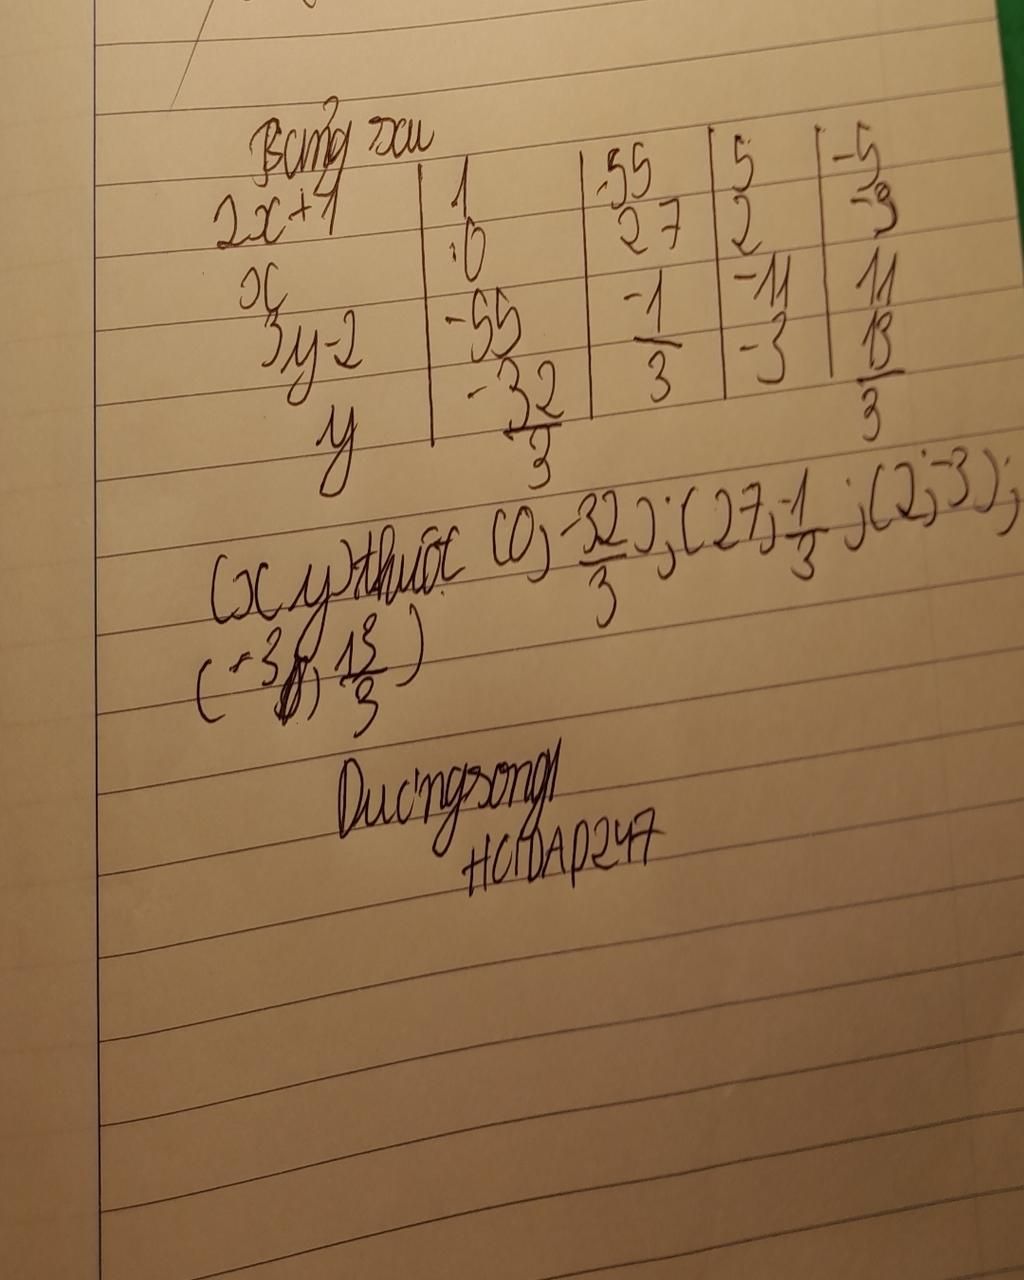 Bảng sau
2x+1 | 1 | -55 | 5 | -5
x | 0 | 27 | 2 | -3
3y-2 | -55 | -1/3 | -11 | 11
y | -32/3 | | -3 | 13/3
(x y) thuộc (0; -32/3); (27; -1/3; (2; -3);
(-3; 13/3)
Duongsong1
HCMDAP247